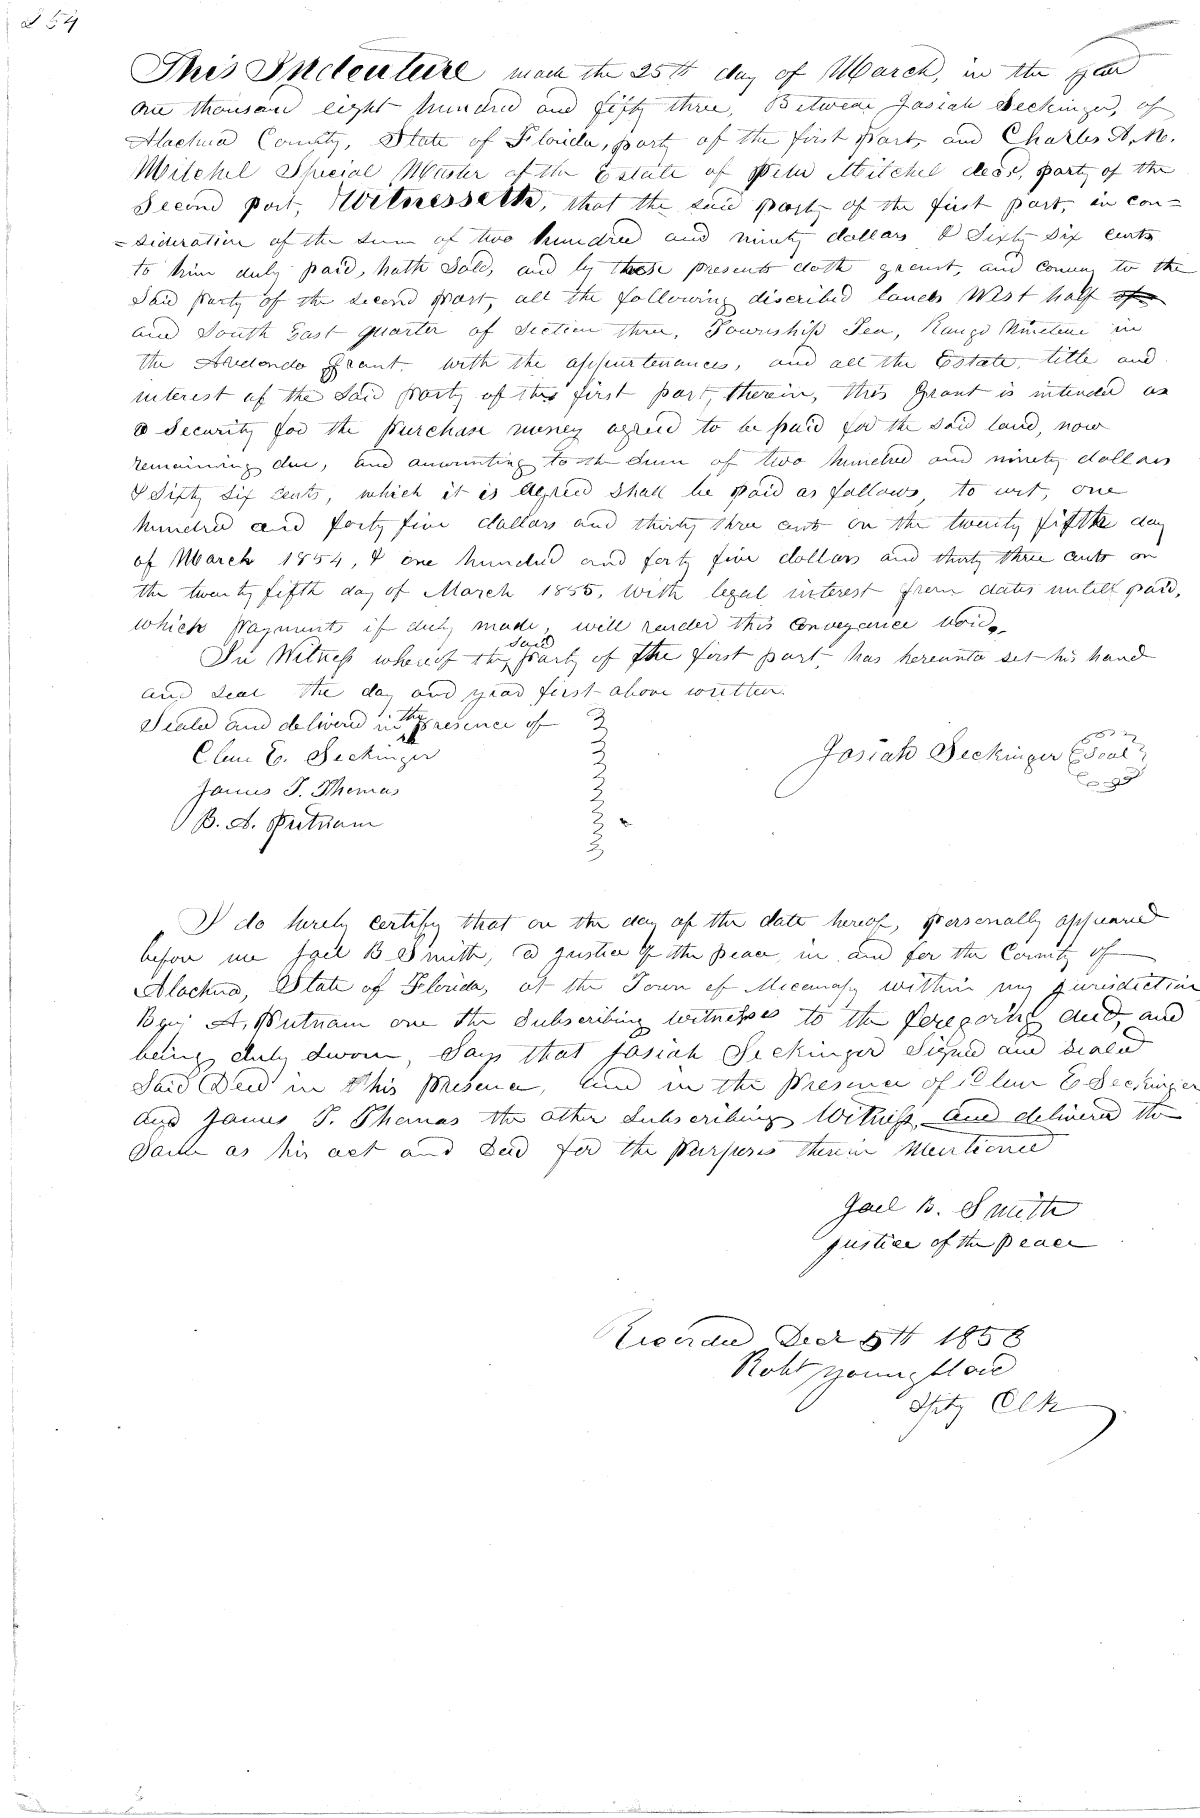 254
This Indenture made the 25th day of March, in the year
one thousand eight hundred and fifty three, Between Josiah Seckinger, of
Alachua County, State of Florida, party of the first part, and Charles A. M.
Mitchel Special Master of the Estate of Peter Mitchel decd, party of the
Second part, Witnesseth, that the said party of the first part, in con=
=sideration of the sum of two hundred and ninety dollars & Sixty six cents
to him duly paid, hath Sold, and by these presents doth grant, and convey to the
Said party of the second part, all the following discribed lands West half of
and South East quarter of Section three, Township Ten, Range Nineteen in
the Arredondo Grant. with the appurtenances, and all the Estate, title and
interest of the Said party of the first part, therein, this Grant is intended as
a Security for the Purchase money agreed to be paid for the said land, now
remaining due, and amounting to the Sum of two hundred and ninety dollars
& Sixty Six cents, which it is agreed Shall be paid as follows, to wit, one
hundred and forty five dollars and thirty three cents on the twenty fifth day
of March 1854, & one hundred and forty five dollars and thirty three cents on
the twenty fifth day of March 1855, with legal interest from dates untill paid,
which payments if duly made, will render this Conveyance void.
In Witness whereof the said party of the first part, has hereunto set his hand
and seal the day and year first above written.
Sealed and delivered in the presence of
Clem E. Seckinger
James T. Thomas
B. A. Putnam
Josiah Seckinger Seal
I do hereby certify that on the day of the date hereof, personally appeared
before me Jael B Smith, a justice of the peace, in and for the County of
Alachua, State of Florida, at the Town of Micanopy within my jurisdiction
Benj A. Putnam one the Subscribing witnesses to the foregoing deed, and
being duly sworn, Says that Josiah Seckinger Signed and sealed
Said Deed in this presence, and in the Presence of Clem E Seckinger
and James T. Thomas the other Subscribing Witness, and delivered the
Same as his act and Deed for the Purposes therein Mentioned
Jael B. Smith
justice of the peace
Recorded Decr 5th 1853
Robt Youngblood
Dpty Clk